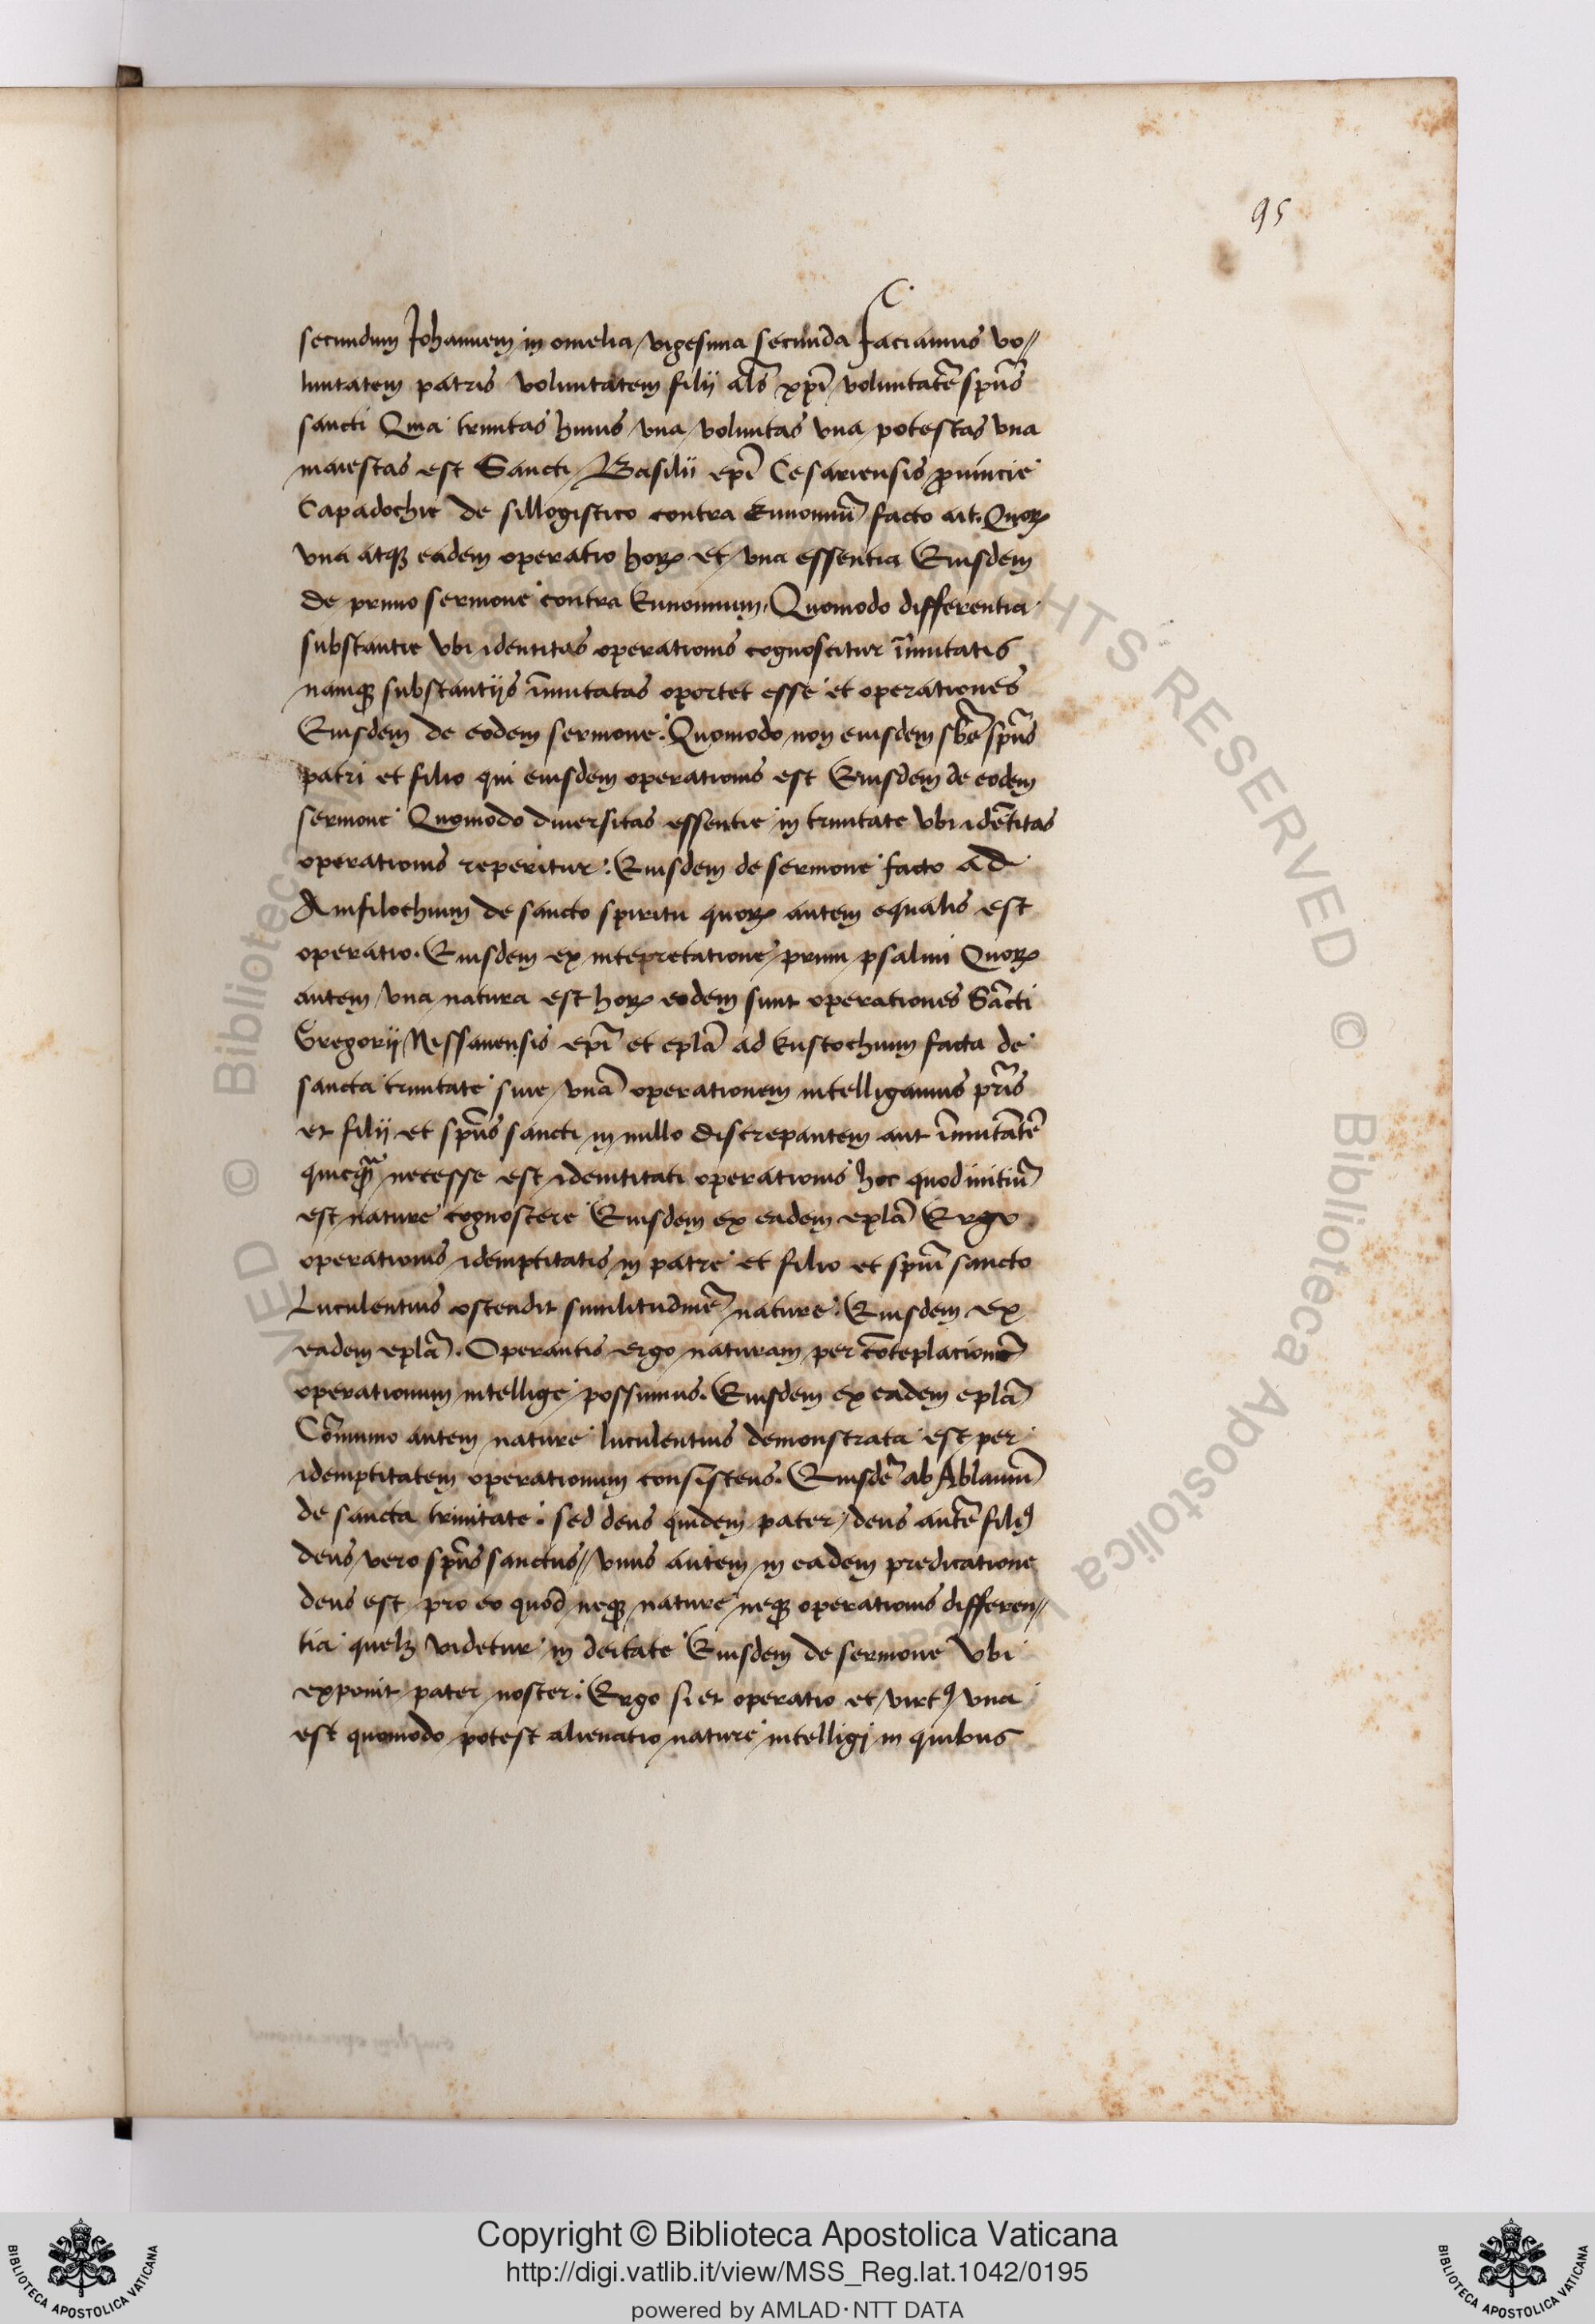 95
secundum Johannem in omelia vigesima secunda faciamus vo//
luntatem patris voluntatem filij als̃ xpĩ voluntatẽ spũs
sancti Quia trinitas huius vna voluntas vna potestas vna
maiestas est Sancti Basilii epĩ Cesariensis ꝓuincie
Capadochie de sillogistico contra Eunomiũ facto ait. Quoꝝ
vna atqꝫ eadem operatio hoꝝ et vna essentia Eiusdem
de primo sermone contra Eunomium, Quomodo differentia
substantie vbi identitas operationis cognoscitur ĩmutatis
namqꝫ substantijs ĩmutatas oportet esse et operationes
Eiusdem de eodem sermone. Quomodo non eiusdem sbẽ spũs
patri et filio qui eiusdem operationis est Eiusdem de eodem
sermone Quomodo diuersitas essentie in trinitate vbi idẽtitas
operationis reperitur: Eiusdem de sermone facto ad
Amfilochium de sancto spiritu quoꝝ autem equalis est
operatio. Eiusdem ex intepretatione primi psalmi Quoꝝ
autem vna natura est hoꝝ eodem sunt operationes Sãcti
Gregorij Nissanensis epĩ et eplã ad Eustochium facta de
sancta trinitate siue vnã operationem intelligamus pr̃is
et filij et spũs sancti in nullo discrepantem aut ĩmutãtẽ
quicqᷓ necesse est idemtitati operationis hoc quod initiũ
est nature cognoscere Eiusdem ex eadem eplã Ergo
operationis idemptitatis in patre et filio et spũ sancto
Luculentius ostendit similitudinẽ nature. Eiusdem ex
eadem eplã. Operantis ergo naturam per cõteplacionẽ
operationum intellige possumus. Eiusdem ex eadem eplã
Cõmunio autem nature luculentius demonstrata est per
idemptitatem operationum consistens. Eiusdẽ ab Ablauiũ
de sancta trinitate. sed deus quidem pater deus autẽ filiꝰ
deus vero spũs sanctus// vnus autem in eadem predicatione
deus est pro eo quod neqꝫ nature neqꝫ operationis differen//
tia quelꝫ videtur in deitate Eiusdem de sermone Vbi
exponit pater noster. Ergo si et operatio et virtꝰ vna
est quomodo potest alienatio nature intelligi in quibus
Copyright © Biblioteca Apostolica Vaticana
http://digi.vatlib.it/view/MSS_Reg.lat.1042/0195
powered by AMLAD·NTT DATA
BIBLIOTECA APOSTOLICA VATICANA
BIBLIOTECA APOSTOLICA VATICANA